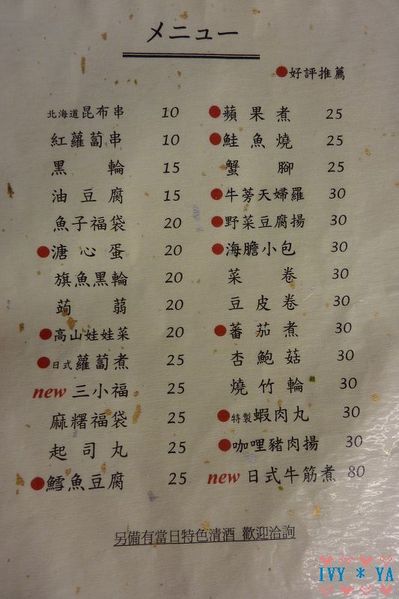 メニュー
●好評推薦
北海道昆布串 10
紅蘿蔔串 10
黑輪 15
油豆腐 15
魚子福袋 20
●溏心蛋 20
旗魚黑輪 20
蒟蒻 20
●高山娃娃菜 20
●日式蘿蔔煮 25
new 三小福 25
麻糬福袋 25
起司丸 25
●鱈魚豆腐 25
●蘋果煮 25
●鮭魚燒 25
蟹腳 25
●牛蒡天婦羅 30
●野菜豆腐揚 30
●海膽小包 30
菜卷 30
豆皮卷 30
●蕃茄煮 30
杏鮑菇 30
燒竹輪 30
●特製蝦肉丸 30
●咖哩豬肉揚 30
new 日式牛筋煮 80
另備有當日特色清酒 歡迎洽詢
IVY * YA